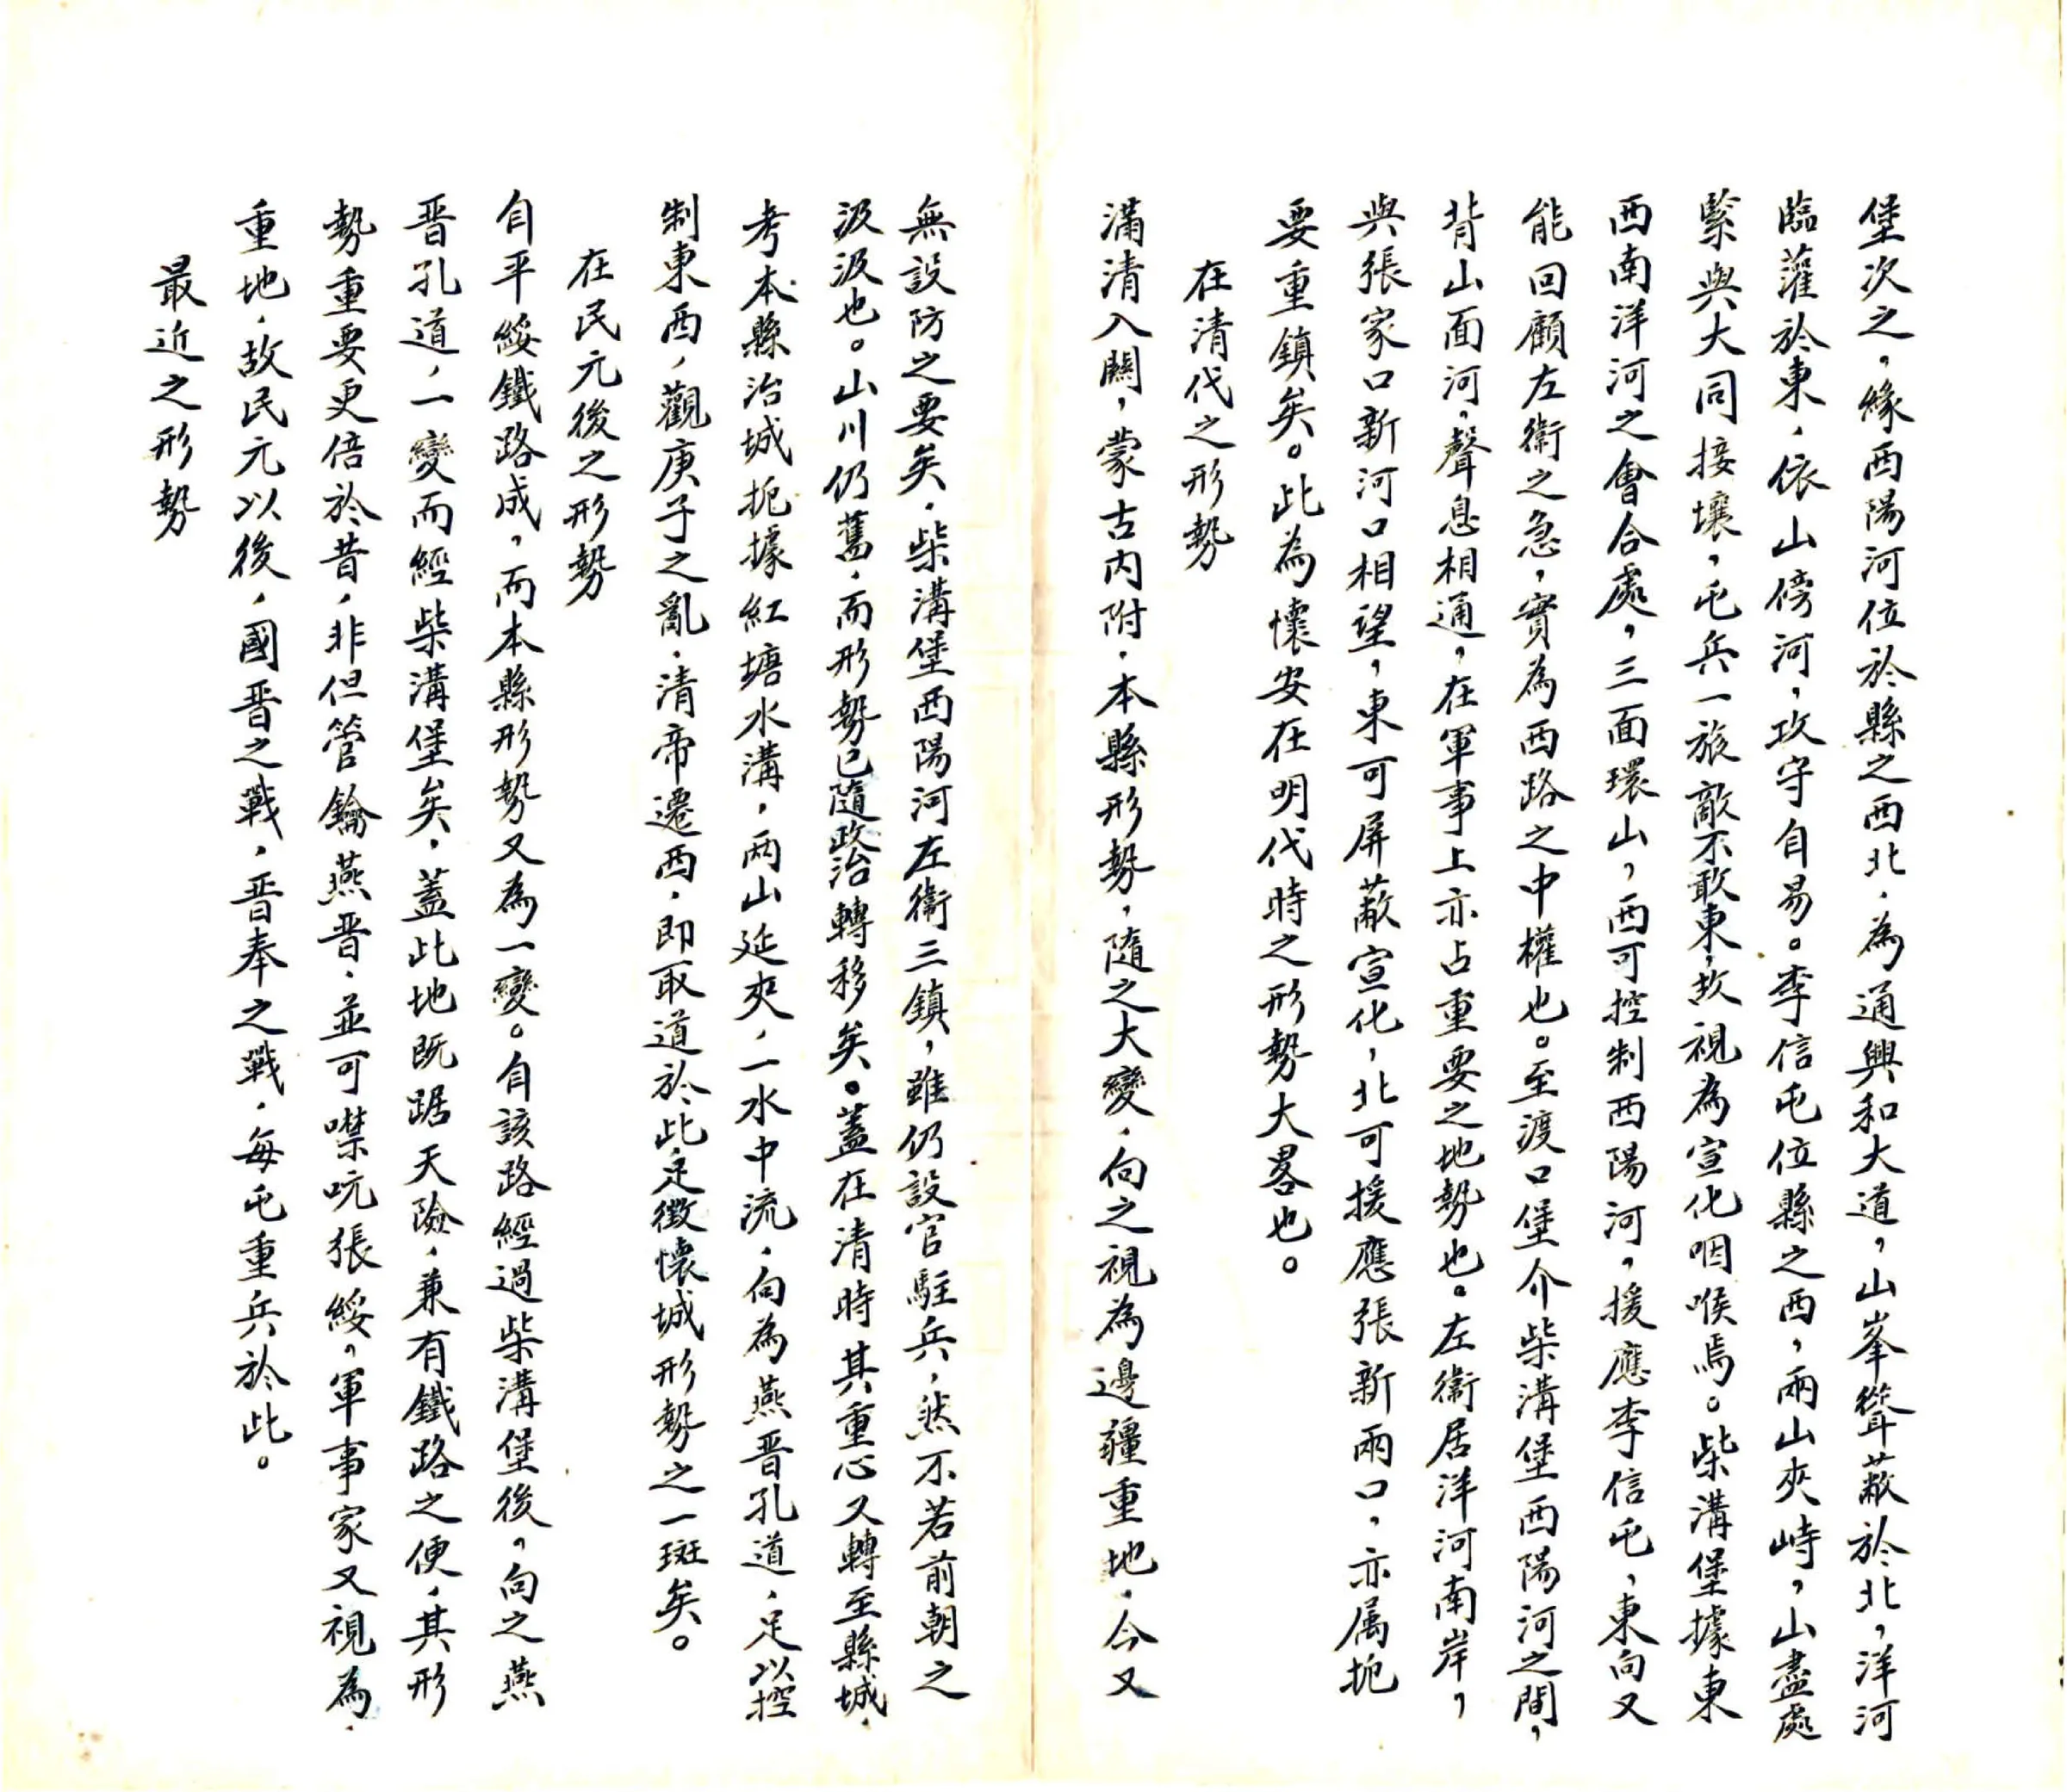 堡次之，緣西陽河位於縣之西北，為通興和大道，山峯聳蔽於北，洋河
臨灌於東，依山傍河，攻守自易。李信屯位縣之西，兩山夾峙，山盡處
緊與大同接壤，屯兵一旅敵不敢東，故視為宣化咽喉焉。柴溝堡據東
西南洋河之會合處，三面環山，西可控制西陽河，援應李信屯，東向又
能回顧左衛之急，實為西路之中權也。至渡口堡介柴溝堡西陽河之間，
背山面河，聲息相通，在軍事上亦占重要之地勢也。左衛居洋河南岸，
與張家口新河口相望，東可屏蔽宣化，北可援應張新兩口，亦属扼
要重鎮矣。此為懷安在明代時之形勢大畧也。
在清代之形勢
滿清入關，蒙古內附，本縣形勢，隨之大變，向之視為邊疆重地，今又
無設防之要矣，柴溝堡西陽河左衛三鎮，雖仍設官駐兵，然不若前朝之
汲汲也。山川仍舊，而形勢已隨政治轉移矣。蓋在清時其重心又轉至縣城，
考本縣治城扼據紅塘水溝，两山延夾，一水中流，向為燕晋孔道，足以控
制東西，觀庚子之亂，清帝遷西，即取道於此，足徵懷城形勢之一斑矣。
在民元後之形勢
自平綏鐵路成，而本縣形勢又為一變。自該路經過柴溝堡後，向之燕
晋孔道，一變而經柴溝堡矣，蓋此地既踞天險，兼有鐵路之便，其形
勢重要更倍於昔，非但管鑰燕晋，並可噤吭張綏，軍事家又視為，
重地，故民元以後，國晋之戰，晋奉之戰，每屯重兵於此。
最近之形勢